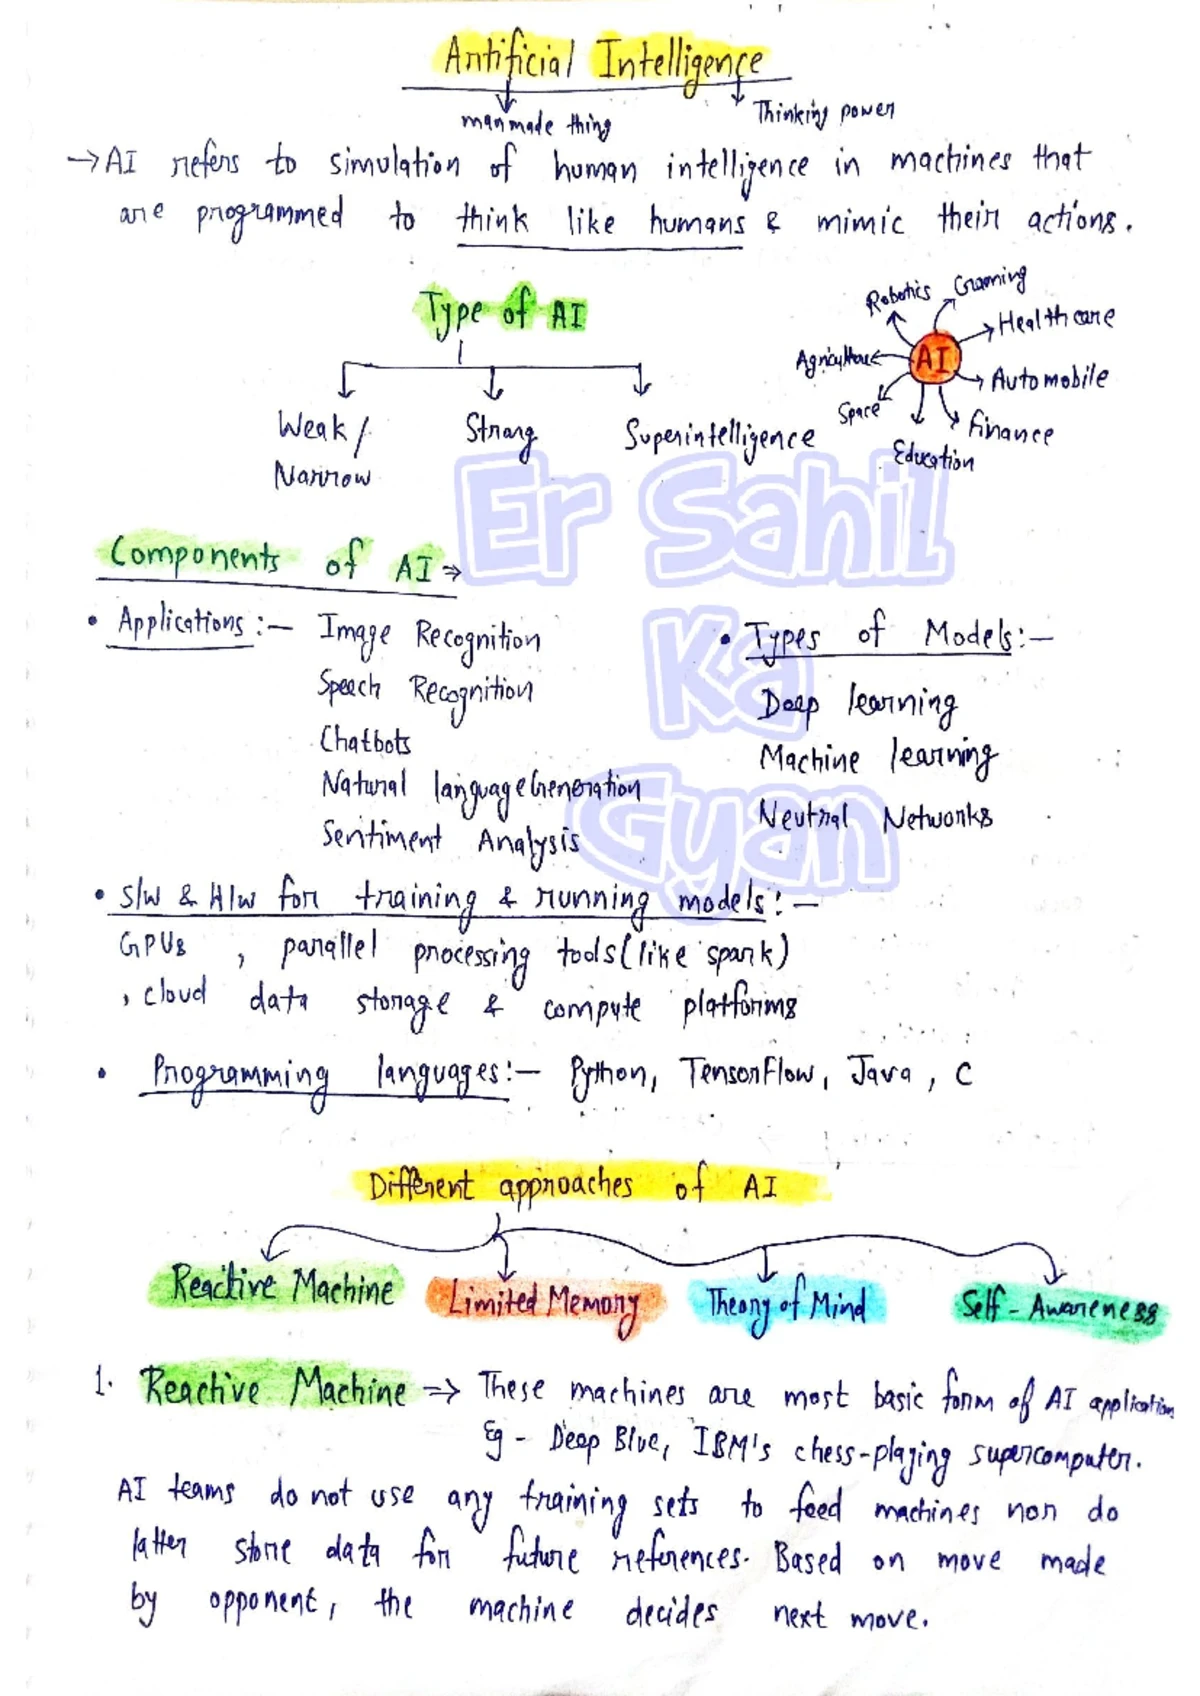 Artificial Intelligence
manmade thing
Thinking power
→ AI refers to simulation of human intelligence in machines that
are programmed to think like humans & mimic their actions.
Type of AI
Weak /
Narrow
Strong
Superintelligence
Robotics
Gaming
Healthcare
Agriculture
AI
Automobile
Space
Finance
Education
Er Sahil
Ka
Gyan
Components of AI ⇒
• Applications :— Image Recognition
Speech Recognition
Chatbots
Natural language Generation
Sentiment Analysis
• Types of Models :—
Deep learning
Machine learning
Neutral Networks
• S/W & H/W for training & running models :—
GPUs , parallel processing tools (like spark)
, cloud data storage & compute platforms
• Programming languages :— Python, TensorFlow, Java , C
Different approaches of AI
Reactive Machine
Limited Memory
Theory of Mind
Self - Awareness
1. Reactive Machine ⇒ These machines are most basic form of AI application
Eg - Deep Blue, IBM's chess-playing supercomputer.
AI teams do not use any training sets to feed machines nor do
latter store data for future references. Based on move made
by opponent, the machine decides next move.